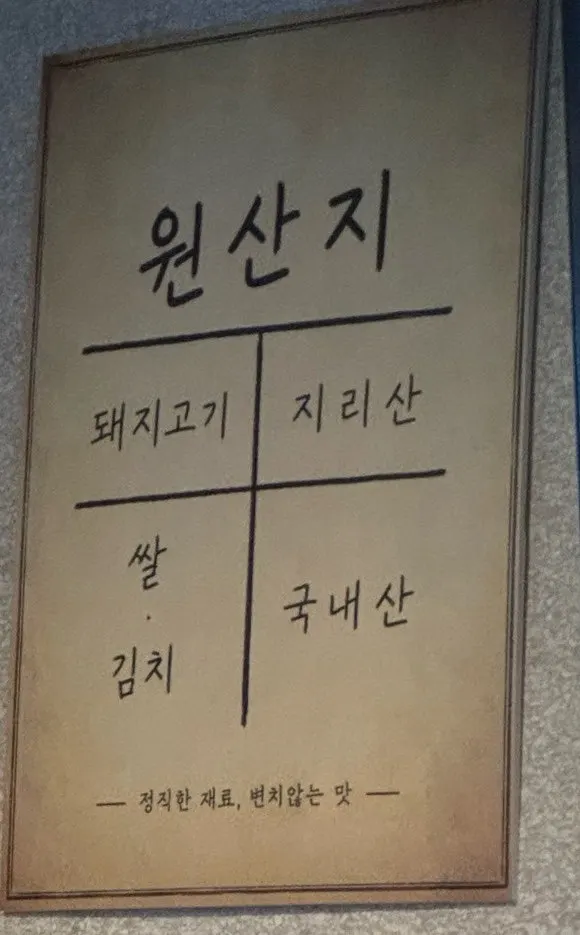 원산지
돼지고기 지리산
쌀
·
김치
국내산
— 정직한 재료, 변치않는 맛 —